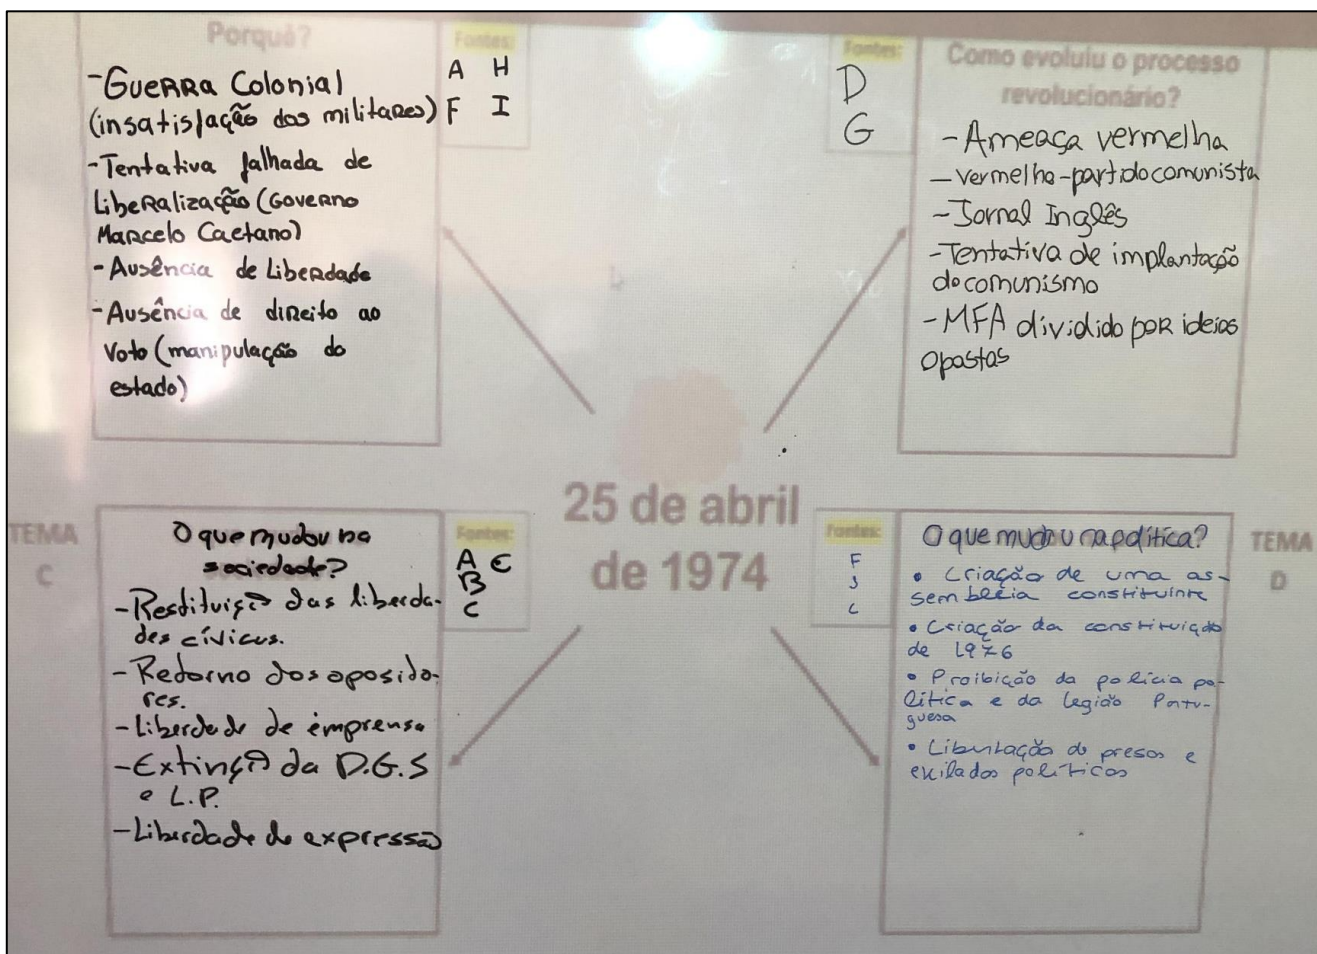 Porquê?
-Guerra Colonial
(insatisfação dos militares)
-Tentativa falhada de
Liberalização (Governo
Marcelo Caetano)
-Ausência de Liberdade
-Ausência de direito ao
Voto (manipulação do
estado)
Fontes:
A H
F I
Fontes:
D
G
Como evoluiu o processo
revolucionário?
-Ameaça vermelha
-vermelha-partido comunista
-Jornal Inglês
-Tentativa de implantação
do comunismo
-MFA dividido por ideias
opostas
25 de abril
de 1974
TEMA
C
O que mudou na
sociedade?
-Restituição das liberda-
des cívicas.
-Retorno dos oposito-
res.
-Liberdade de emprensa
-Extinção da D.G.S
e L.P.
-Liberdade de expressão
Fontes:
A E
B
C
Fontes:
F
J
C
O que mudou na política?
• Criação de uma as-
sembleia constituinte
• Criação da constituição
de 1976
• Proibição da polícia po-
lítica e da legião Portu-
guesa
• Libertação de presos e
exilados políticos
TEMA
D